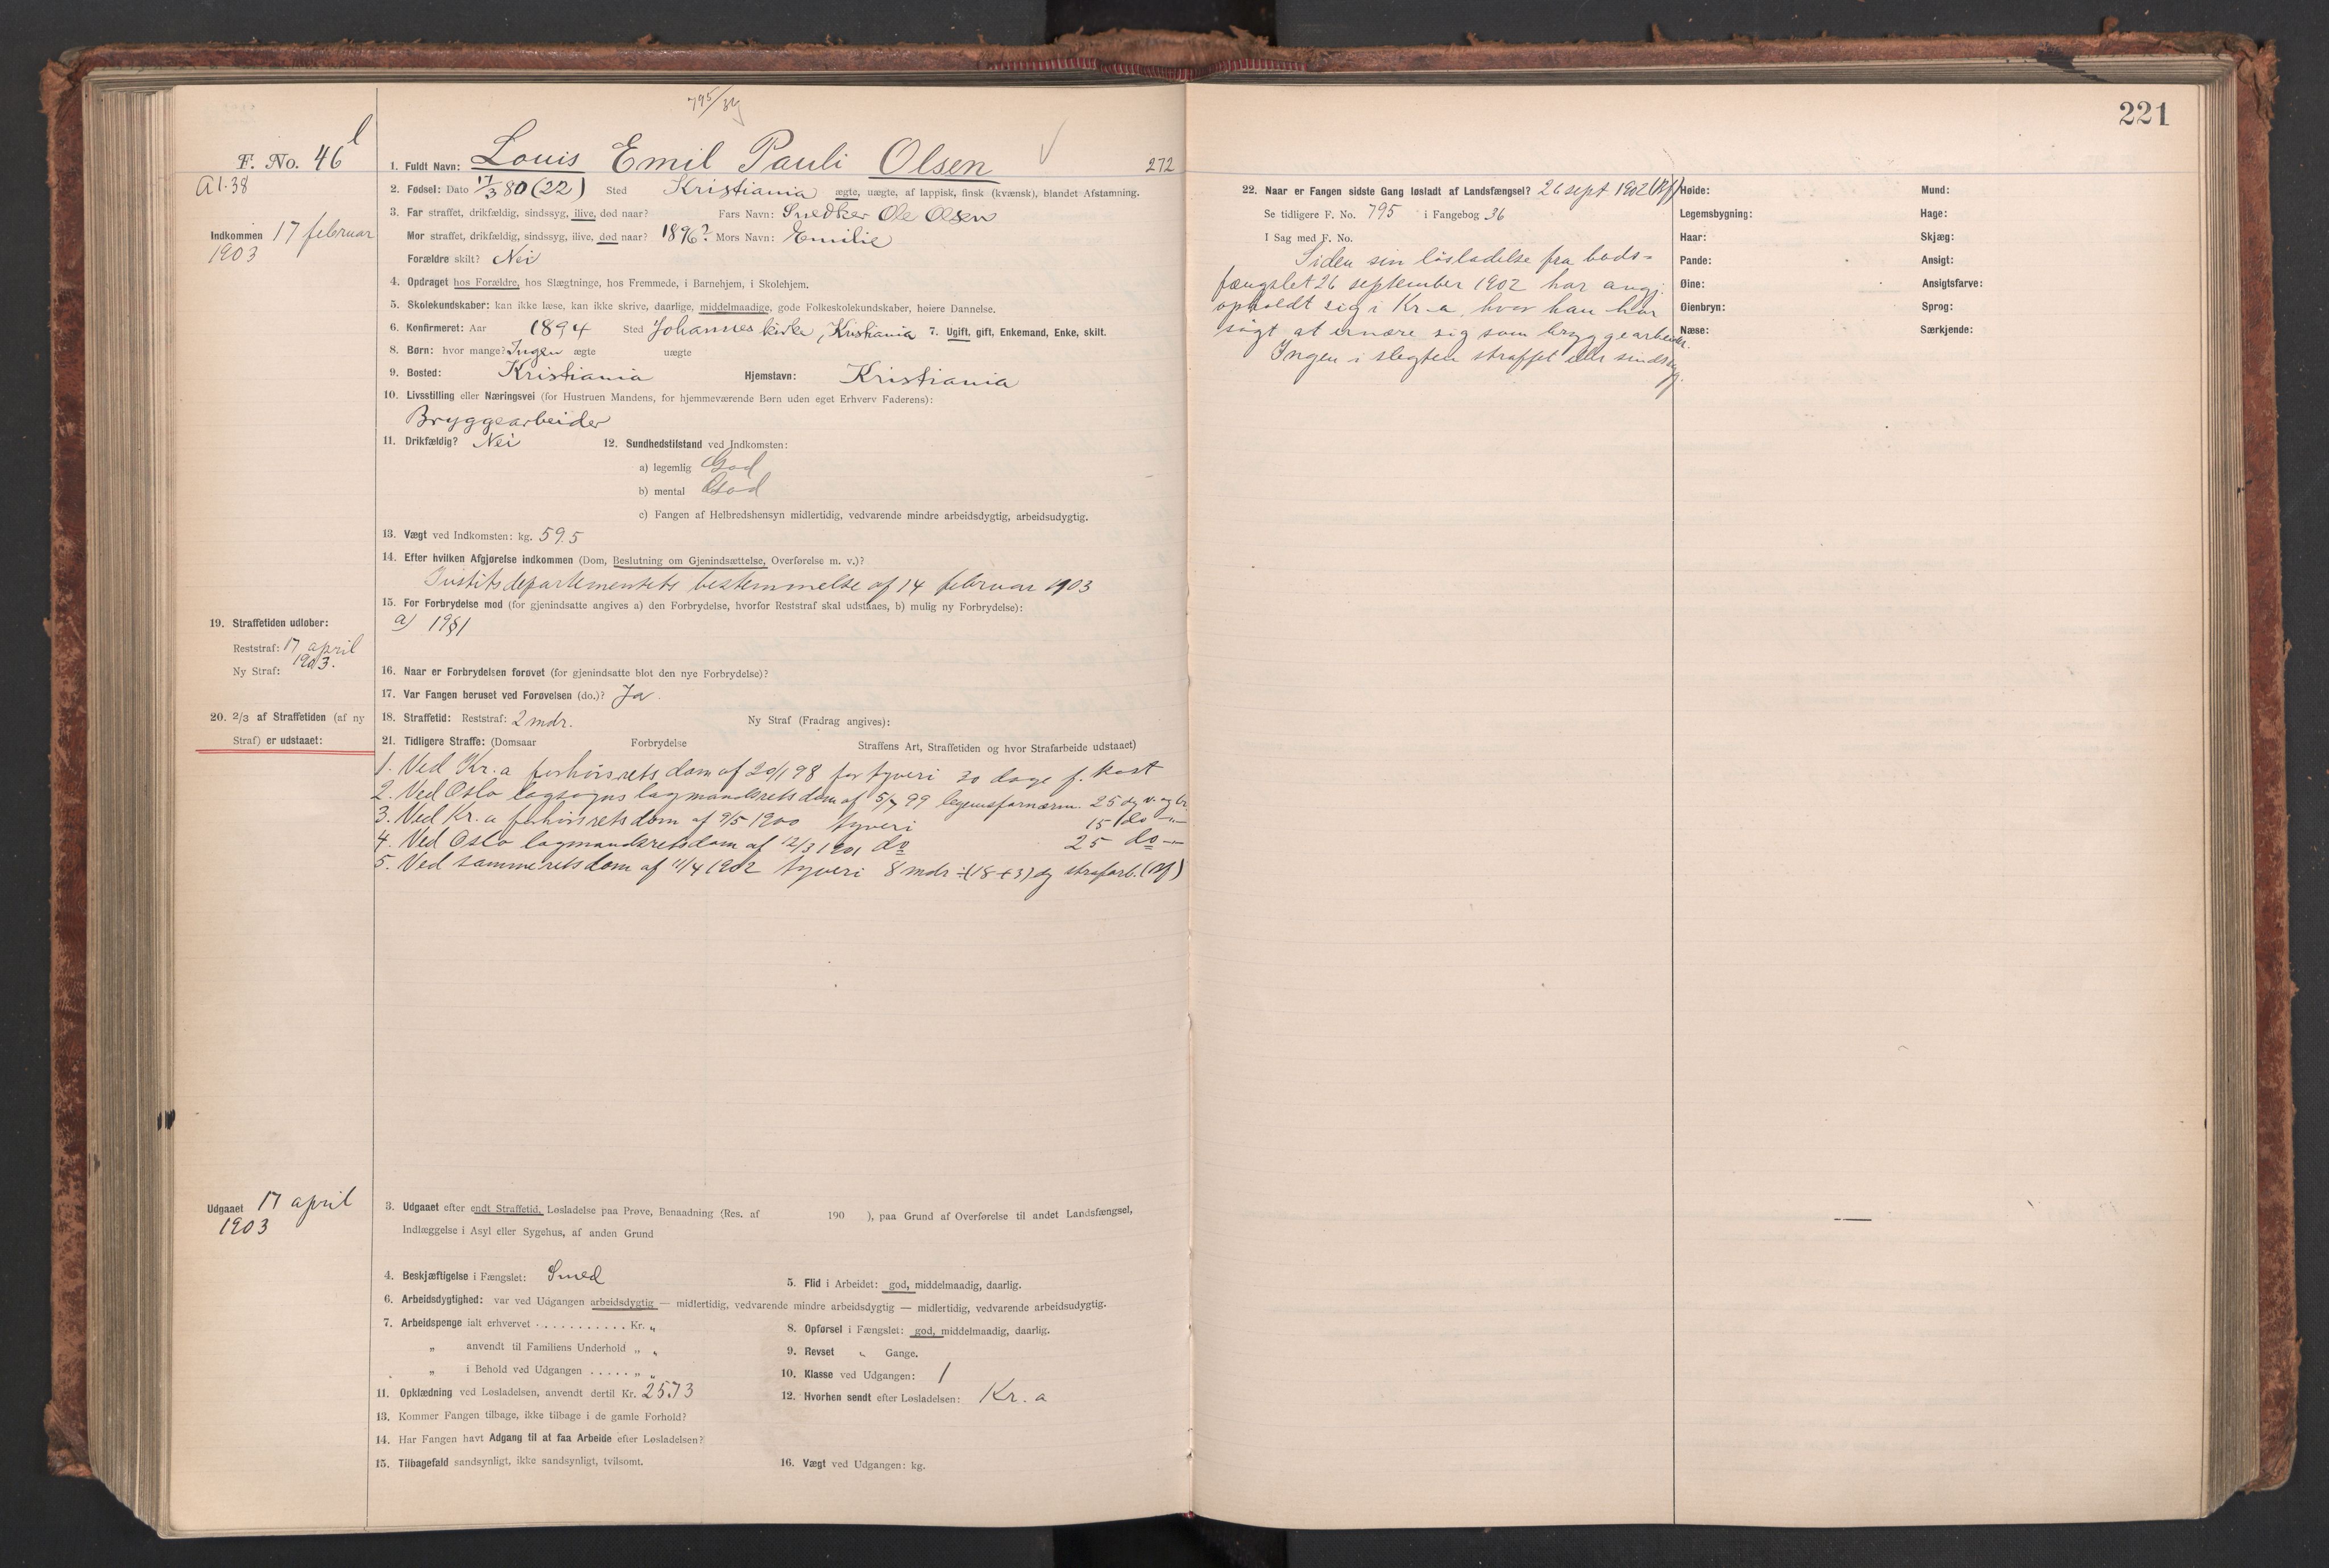 795/34
F. No. 46 l
A 1.38
Indkommen 17 februar
1903
1. Fuldt Navn: Louis Emil Pauli Olsen 272
2. Fødsel: Dato 17/3 80 (22) Sted Kristiania ægte, uægte, af lappisk, finsk (kvænsk), blandet Afstamning.
3. Far straffet, drikfældig, sindssyg, ilive, død naar? Fars Navn: Snedker Ole Olsen
Mor straffet, drikfældig, sindssyg, ilive, død naar? 1896? Mors Navn: Emilie
Forældre skilt? Nei
4. Opdraget hos Forældre, hos Slægtninge, hos Fremmede, i Barnehjem, i Skolehjem.
5. Skolekundskaber: kan ikke læse, kan ikke skrive, daarlige, middelmaadige, gode Folkeskolekundskaber, høiere Dannelse.
6. Konfirmeret: Aar 1894 Sted Johannes kirke, Kristiania 7. Ugift, gift, Enkemand, Enke, skilt.
8. Børn: hvor mange? Ingen ægte uægte
9. Bosted: Kristiania Hjemstavn: Kristiania
10. Livsstilling eller Næringsvei (for Hustruen Mandens, for hjemmeværende Børn uden eget Erhverv Faderens):
Bryggearbeider
11. Drikfældig? Nei 12. Sundhedstilstand ved Indkomsten:
a) legemlig God
b) mental God
c) Fangen af Helbredshensyn midlertidig, vedvarende mindre arbeidsdygtig, arbeidsudygtig.
13. Vægt ved Indkomsten: kg. 59.5
14. Efter hvilken Afgjørelse indkommen (Dom, Beslutning om Gjenindsættelse, Overførelse m. v.)?
Justitsdepartementets bestemmelse af 14 februar 1903
15. For Forbrydelse mod (for gjenindsatte angives a) den Forbrydelse, hvorfor Reststraf skal udstaaes, b) mulig ny Forbrydelse):
a) 19§1
19. Straffetiden udløber:
Reststraf: 17 april
1903.
Ny Straf:
16. Naar er Forbrydelsen forøvet (for gjenindsatte blot den nye Forbrydelse)?
17. Var Fangen beruset ved Forøvelsen (do.)? Ja.
20. 2/3 af Straffetiden (af ny
Straf) er udstaaet:
18. Straffetid: Reststraf: 2 mdr. Ny Straf (Fradrag angives):
21. Tidligere Straffe: (Domsaar Forbrydelse Straffens Art, Straffetiden og hvor Strafarbeide udstaaet)
1. Ved Kr.a forhörsrets dom af 20/1 98 for tyveri 20 dage f. kost
2. Ved Oslo lagsogns lagmandsrets dom af 5/7 99 legemsfornærm. 25 dg v. og br.
3. Ved Kr.a forhörsrets dom af 9/5 1900 tyveri 15 do -"-
4. Ved Oslo lagmandsrets dom af 12/3 1901 do 25 do -"-
5. Ved samme rets dom af 11/4 1902 tyveri 8 mdr ÷ (18+3) dg strafarb. (Bf)
Udgaaet 17 april
1903
3. Udgaaet efter endt Straffetid, Løsladelse paa Prøve, Benaadning (Res. af 190 ), paa Grund af Overførelse til andet Landsfængsel,
Indlæggelse i Asyl eller Sygehus, af anden Grund
4. Beskjæftigelse i Fængslet: Smed 5. Flid i Arbeidet: god, middelmaadig, daarlig.
6. Arbeidsdygtighed: var ved Udgangen arbeidsdygtig — midlertidig, vedvarende mindre arbeidsdygtig — midlertidig, vedvarende arbeidsudygtig.
7. Arbeidspenge ialt erhvervet . . . . . . . . . . . Kr. " 8. Opførsel i Fængslet: god, middelmaadig, daarlig.
" anvendt til Familiens Underhold " " 9. Revset " Gange.
" i Behold ved Udgangen . . . . . " " 10. Klasse ved Udgangen: 1
11. Opklædning ved Løsladelsen, anvendt dertil Kr. 25.73 12. Hvorhen sendt efter Løsladelsen: Kr.a
13. Kommer Fangen tilbage, ikke tilbage i de gamle Forhold?
14. Har Fangen havt Adgang til at faa Arbeide efter Løsladelsen?
15. Tilbagefald sandsynligt, ikke sandsynligt, tvilsomt. 16. Vægt ved Udgangen: kg.
221
22. Naar er Fangen sidste Gang løsladt af Landsfængsel? 26 sept. 1902 (Bf)
Se tidligere F. No. 795 i Fangebog 36
I Sag med F. No.
Siden sin løsladelse fra bods-
fængslet 26 september 1902 har angj.
opholdt sig i Kr.a, hvor han har
søgt at ernære sig som bryggearbeider.
Ingen i slegten straffet eller sindssyg.
Høide: Mund:
Legemsbygning: Hage:
Haar: Skjæg:
Pande: Ansigt:
Øine: Ansigtsfarve:
Øienbryn: Sprog:
Næse: Særkjende: